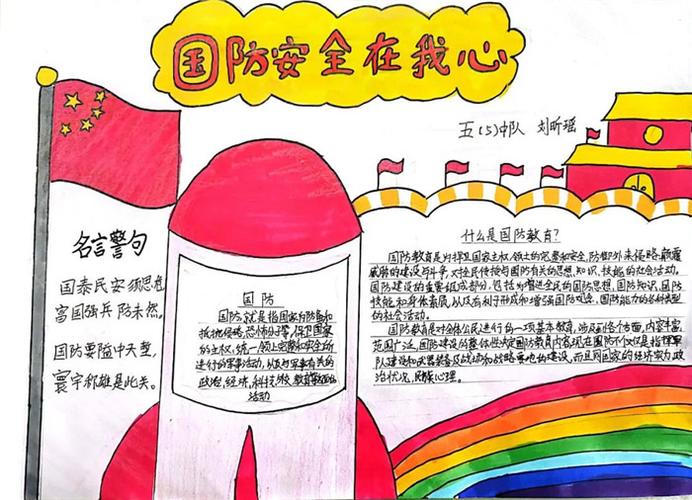 国防安全在我心
五(5)中队 刘昕瑶
名言警句
国泰民安须思危
富国强兵防未然。
国防要隘中天堑,
寰宇称雄是此关。
国防
国防,就是指国家为防备和
抵抗侵略,恐怖分子等,保卫国家
的主权,统一领土完整和安全所
进行的军事活动,以及与军事有关的
政治,经济,科技,外交,教育等方面的
活动
什么是国防教育?
国防教育是为捍卫国家主权、领土的完整和安全,防御外来侵略、颠覆
威胁的建设与斗争,对全民传授与国防有关的思想、知识、技能的社会活动。
国防建设的重要组成部分,包括为增进全民的国防思想,国防知识,国防
技能和身体素质,以及有利于形成和增强国防观念,国防能力的各种类型
的社会活动。
国防教育是对全体公民进行的一项基本教育,涉及到各个方面,内容丰富,
范围广泛,国防建设的整体性决定国防教育内容,现在国防不仅仅是指挥军
队建设和武器装备及战场和战略要地的建设,而且同国家的经济实力政
治状况,民族心理。